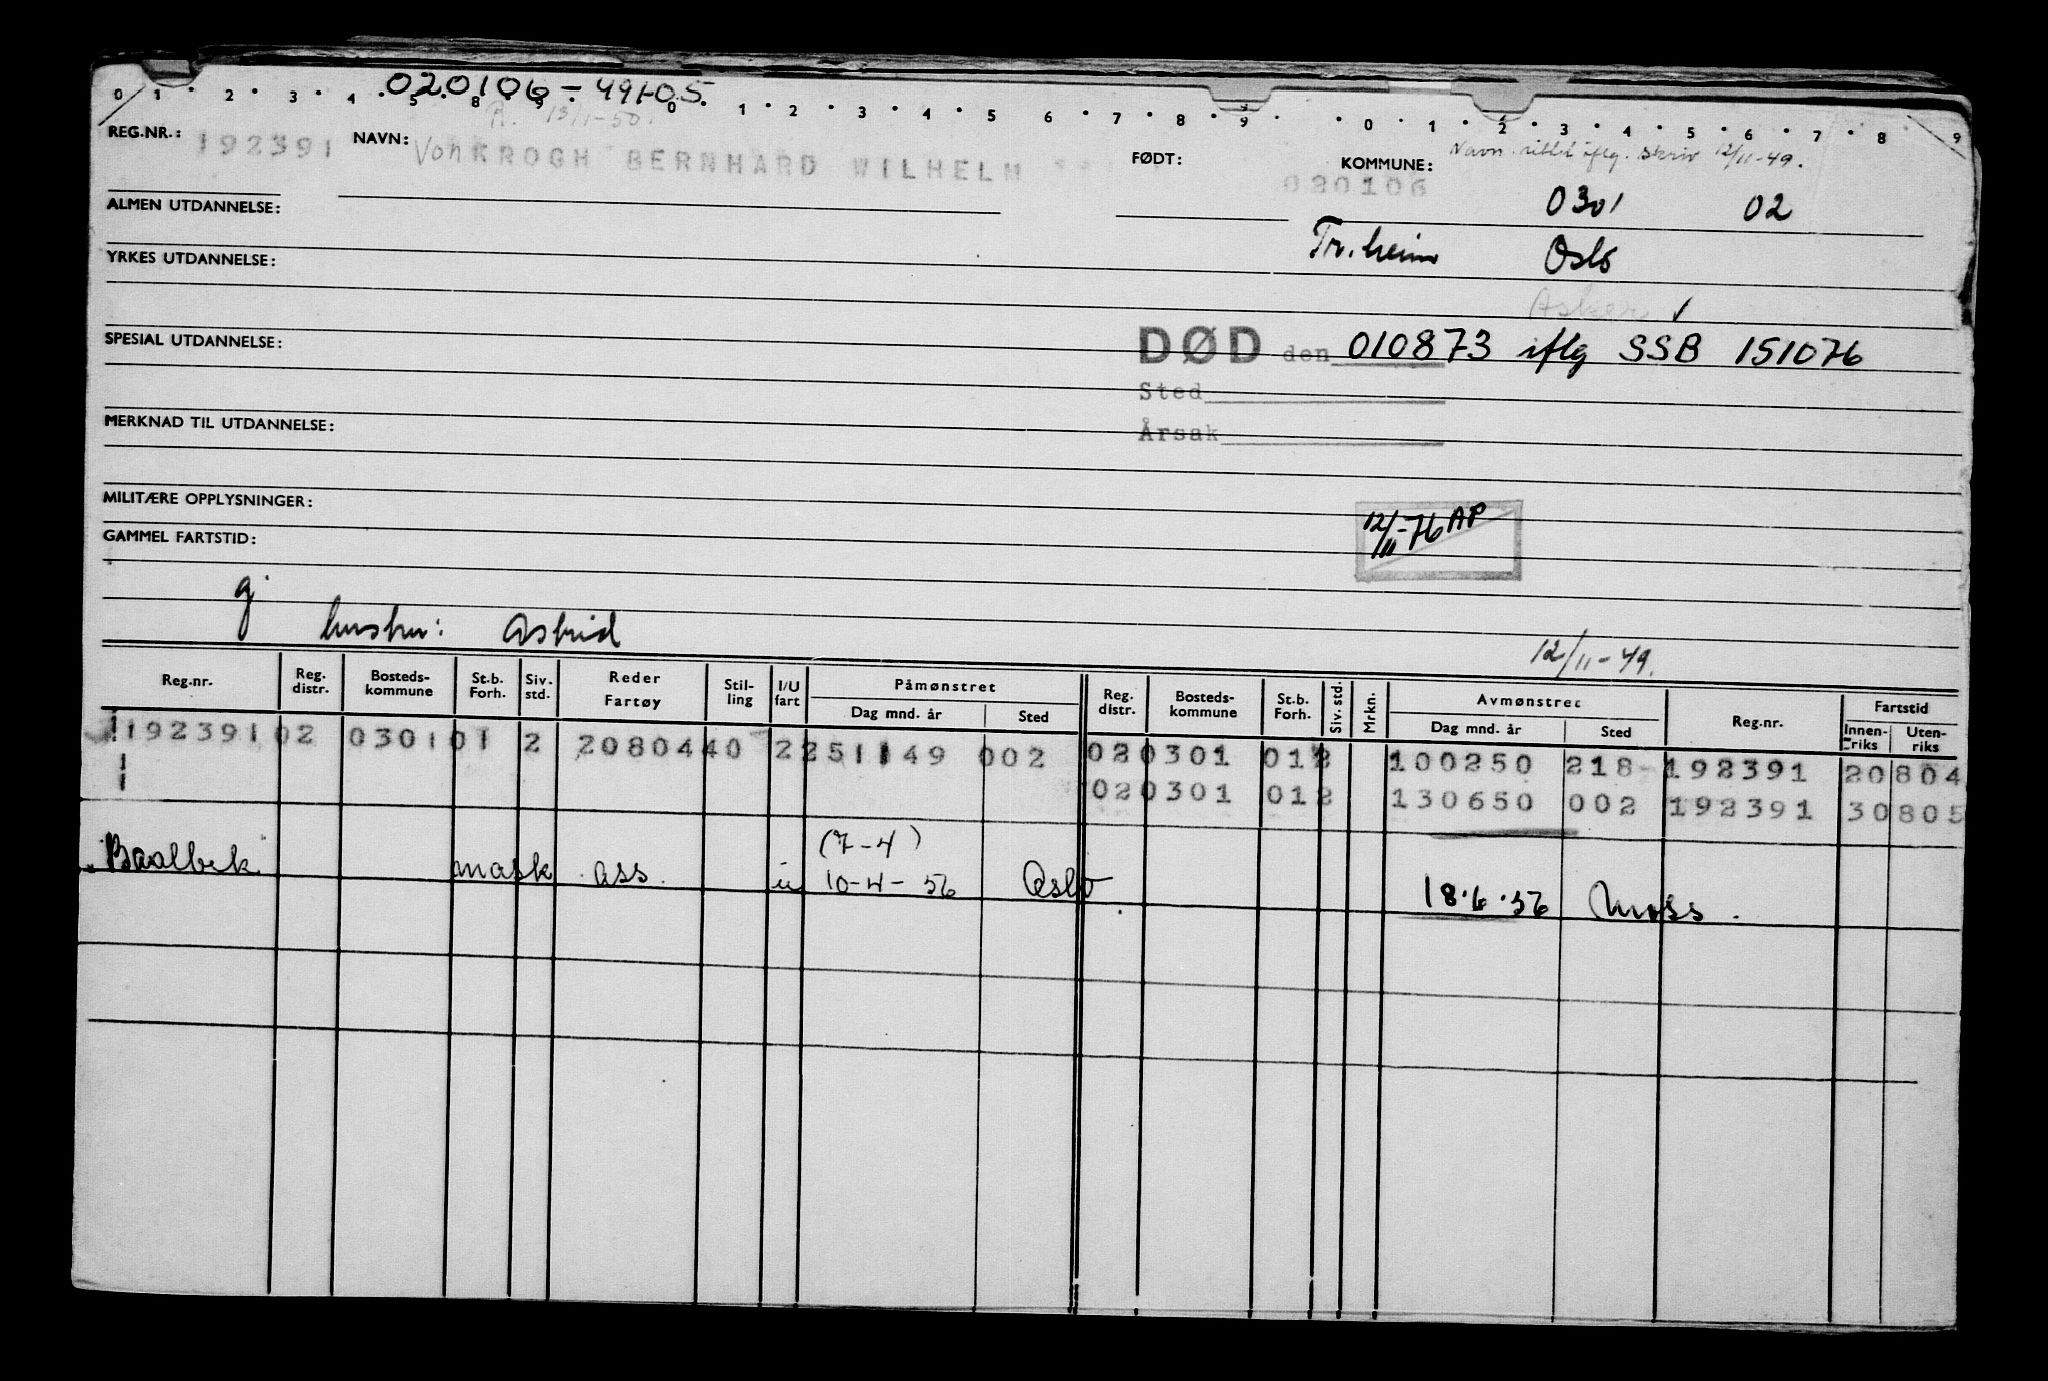 020106 - 49105
0 1 2 3 4 5 8 9 0 1 2 3 4 5 6 7 8 9 0 1 2 3 4 5 6 7 8 9
R. 13/1-50.
REG.NR.: 192391 NAVN: Von KROGH BERNHARD WILHELM FØDT: 020106 KOMMUNE: Navn rittet iflg. skriv 12/11-49.
0301 02
ALMEN UTDANNELSE:
Tr.heim Oslo
YRKES UTDANNELSE:
Asker ✓
SPESIAL UTDANNELSE: DØD den 010873 iflg SSB 151076
Sted
MERKNAD TIL UTDANNELSE: Årsak
MILITÆRE OPPLYSNINGER:
12/11-76 AP
GAMMEL FARTSTID:
gj hustru: Astrid
12/11-49.
Reg.nr. Reg. distr. Bosteds-kommune St.b. Forh. Siv. std. Reder Fartøy Stil-ling I/U fart Påmønstret Dag mnd. år Sted Reg. distr. Bosteds-kommune St.b. Forh. Siv. std. Mrkn. Avmønstret Dag mnd. år Sted Reg.nr. Fartstid Innen-riks Uten-riks
192391 02 0301 01 2 2080440 2 251149 002 02 0301 01 2 100250 218 192391 20 804
02 0301 01 2 130650 002 192391 30 805
(7-4)
Baalbek mask ass. u 10-4-56 Oslo 18.6.56 Moss.